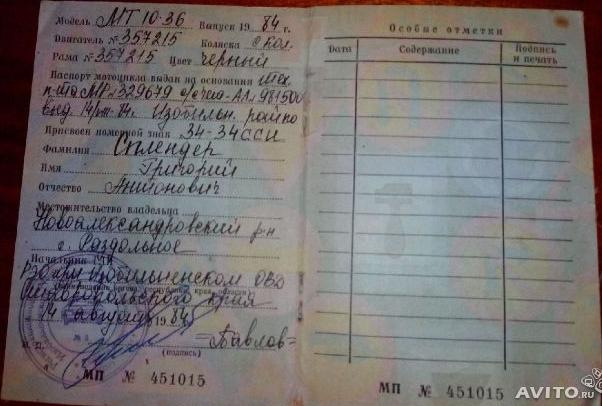 Модель МТ 10-36 Выпуск 19 84 г.
Двигатель № 357215 Коляска с кол.
Рама № 357215 Цвет чёрный
Паспорт мотоцикла выдан на основании тех.
329679 981500
выд. Изобильн.
Присвоен номерной знак 34-34 ССП
Фамилия Сплендер
Имя Григорий
Отчество Антонович
Местожительство владельца
Новоалександровский р-н
с. Раздольное
Начальник ГАИ
Изобильненском ОВД
Ставропольского края
14 августа 1984 г.
=Павлов=
(подпись)
МП № 451015
Особые отметки
Дата Содержание Подпись и печать
МП № 451015
AVITO.ru